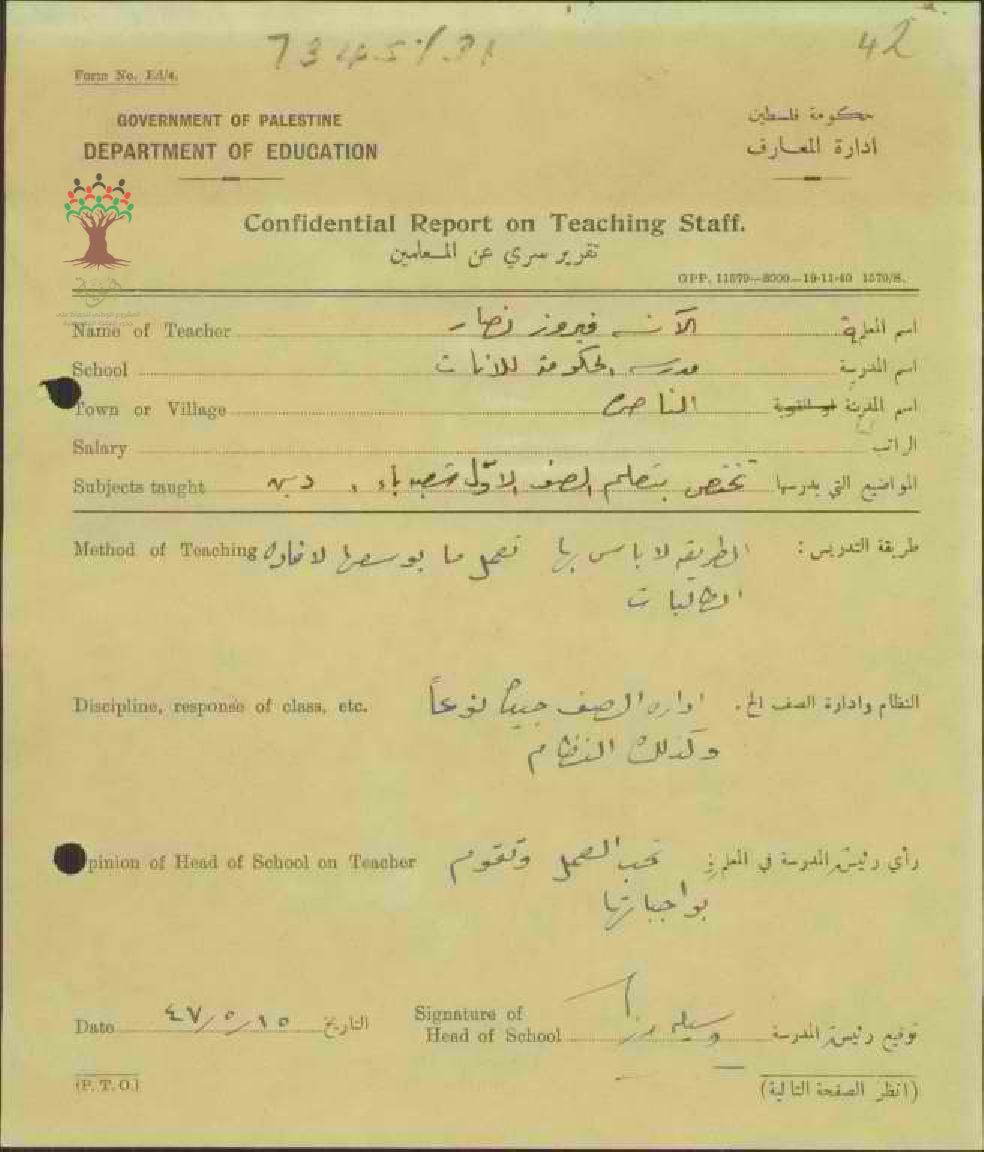 42
Form No. Ed/4.
GOVERNMENT OF PALESTINE
DEPARTMENT OF EDUCATION
حكومة فلسطين
ادارة المعارف
Confidential Report on Teaching Staff.
تقرير سري عن المعلمين
GPP. 11579—8000—19-11-40 1570/S.
Name of Teacher الآنسه فيروز نصار اسم المعلمة
School مدرسة الحكومة للاناث اسم المدرسة
Town or Village الناصرة اسم المدينة او القرية
Salary الراتب
Subjects taught تختص بتعليم الصف الاول دين المواضيع التي يدرسها
Method of Teaching الطريقه لا باس بها تعمل ما بوسعها لافادة طريقة التدريس :
الطالبات
Discipline, response of class, etc. ادارة الصف جيدة نوعاً النظام وادارة الصف الخ.
وكذلك النظام
Opinion of Head of School on Teacher تحب العمل وتقوم رأي رئيسة المدرسة في المعلمة
بواجباتها
Date ٤٧/٥/١٥ التاريخ
Signature of
Head of School توقيع رئيسة المدرسة
(P. T. O.)
(انظر الصفحة التالية)